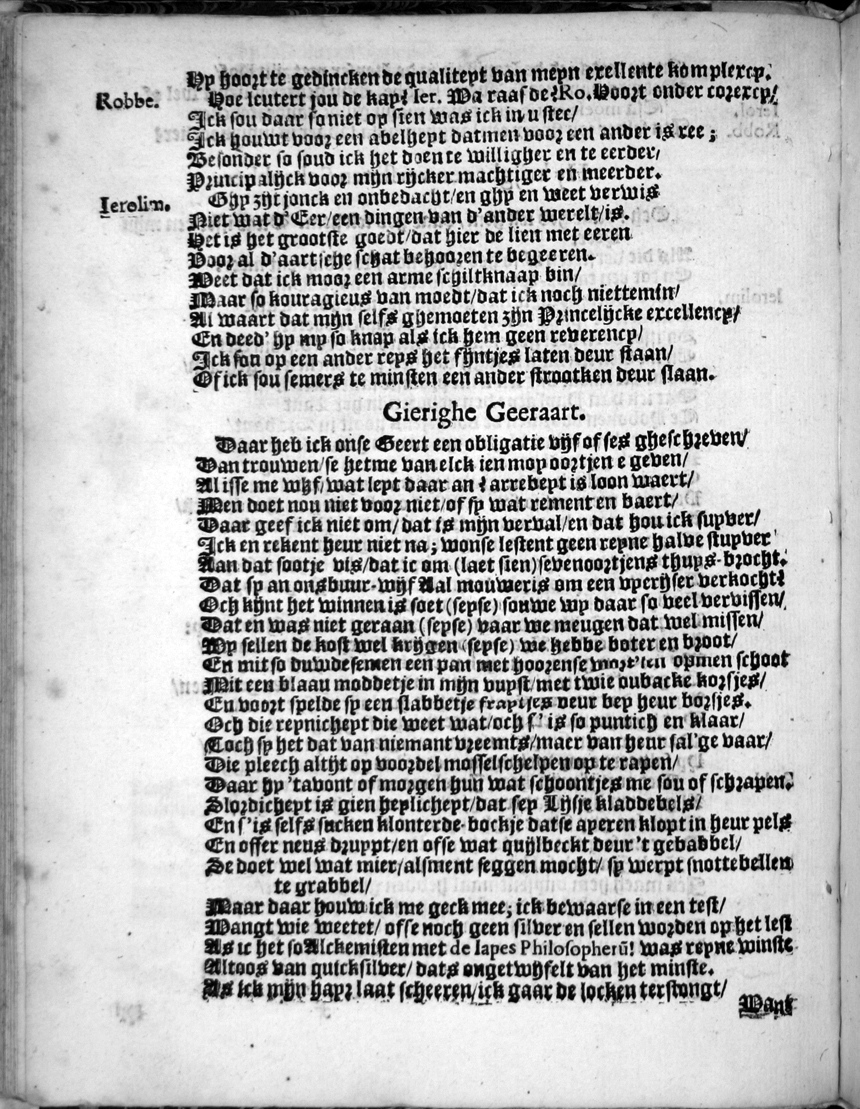 Hy hoort te gedincken de qualiteyt van meyn exellente komplexcy.
Robbe. Hoe leutert jou de kap? Ier. Wa raas de? Ro. Hoort onder corexcy/
Ick sou daar so niet op sien was ick in u stee/
Ick houwt voor een abelheyt datmen voor een ander is ree;
Besonder so soud ick het doen te willigher en te eerder/
Principalijck voor mijn rijcker machtiger en meerder.
Ierolim. Ghy zijt jonck en onbedacht/en ghy en weet verwis
Niet wat d'Eer/een dingen van d'ander werelt/is.
Het is het grootste goedt/dat hier de lien met eeren
Voor al d'aartsche schat behooren te begeeren.
Weet dat ick moor een arme schiltknaap bin/
Maar so kouragieus van moedt/dat ick noch niettemin/
Al waart dat mijn selfs ghemoeten zijn Princelijcke excellency/
En deed' hy my so knap als ick hem geen reverency/
Ick sou op een ander reys het fijntjes laten deur staan/
Of ick sou semers te minsten een ander strootken deur slaan.
Gierighe Geeraart.
Daar heb ick onse Geert een obligatie vijf of ses gheschreven/
Van trouwen/se hetme van elck ien moy oortjen e geven/
Al isse me wijf/wat leyt daar an? arrebeyt is loon waert/
Men doet nou niet voor niet/of sy wat rement en baert/
Daar geef ick niet om/dat is mijn verval/en dat hou ick suyver/
Ick en rekent heur niet na; wonse lestent geen reyne halve stuyver
Aan dat sootje vis/dat ic om (laet sien) sevenoortjens thuys-brocht.
Dat sy an ons buur-wijf Aal mouweris om een vyerijser verkocht?
Och kijnt het winnen is soet (seyse) souwe wy daar so veel vervissen/
Dat en was niet geraan (seyse) vaar we meugen dat wel missen/
Wy sellen de kost wel krijgen (seyse) we hebbe boter en broot/
En mit so duwdesemen een pan met hoorense opmen schoot
Mit een blaau moddetje in mijn vuyst/met twie oubacke korsjes/
En voort spelde sy een slabbetje fraytjes veur bey heur borsjes.
Och die reynicheyt die weet wat/och s'is so puntich en klaar/
Toch sy het dat van niemant vreemts/maer van heur sal'ge vaar/
Die pleech altijt op voordel mosselschelpen op te rapen/
Daar hy 'tavont of morgen hun wat schoontjes me sou of schrapen.
Slordicheyt is gien heylicheyt/dat sey Lijsje kladdebels/
En s'is selfs sucken klonterde-bockje datse aperen klopt in heur pels
En offer neus druypt/en ofse wat quijlbeckt deur 't gebabbel/
Se doet wel wat mier/alsment seggen mocht/ sy werpt snottebellen
te grabbel/
Maar daar houw ick me geck mee; ick bewaarse in een test/
Wangt wie weetet/ ofse noch geen silver en sellen worden op het lest
As ic het so Alckemisten met de lapes Philosopherū! was reyne winste
Altoos van quicksilver/dats ongetwijfelt van het minste.
As ick mijn hayr laat scheeren/ick gaar de locken terstongt/
Want